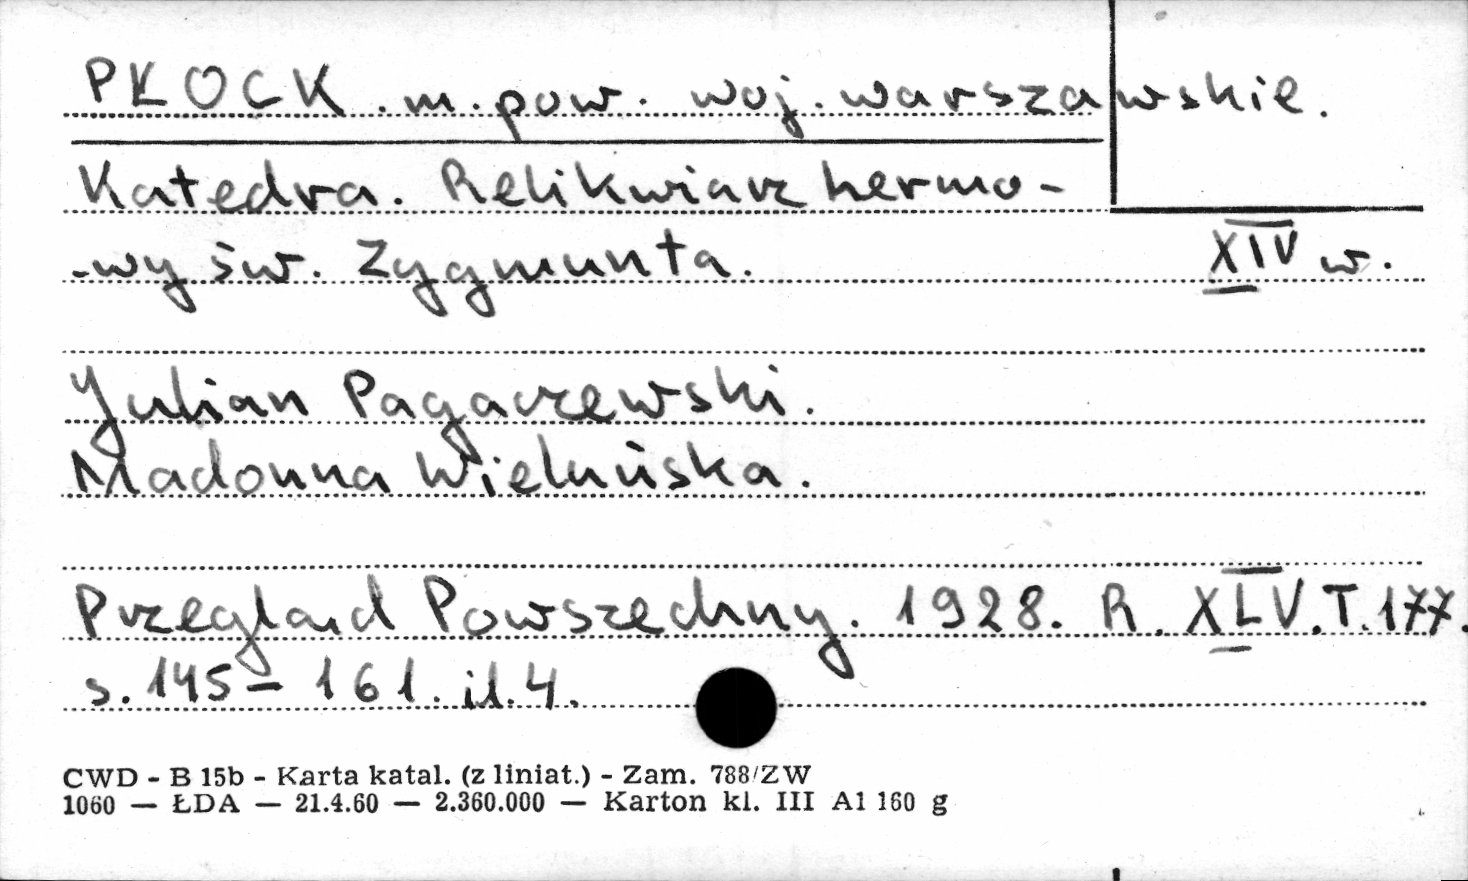 PŁOCK. m. pow. woj. warszawskie.
Katedra. Relikwiarz hermo-
-wy św. Zygmunta. XIV w.
Julian Pagaczewski.
Madonna Wieluńska.
Przegląd Powszechny. 1928. R. XLV. T. 177.
s. 145 – 161. il. 4.
CWD - B 15b - Karta katal. (z liniat.) - Zam. 788/ZW
1060 — ŁDA — 21.4.60 — 2.360.000 — Karton kl. III A1 160 g